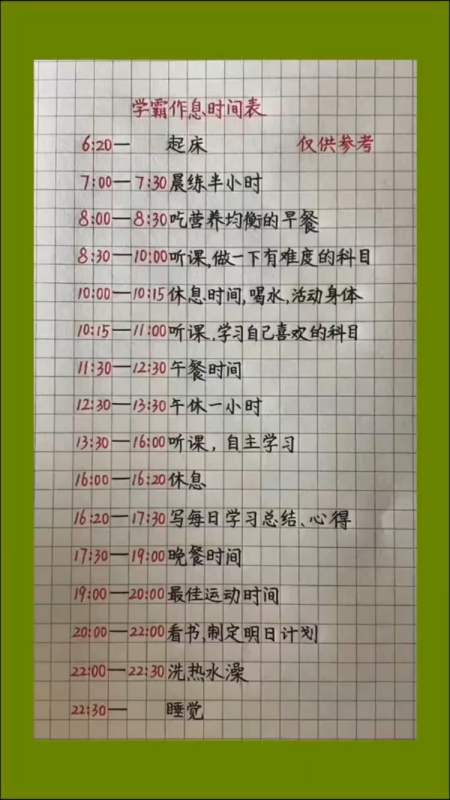 学霸作息时间表
6:20— 起床 仅供参考
7:00—7:30 晨练半小时
8:00—8:30 吃营养均衡的早餐
8:30—10:00 听课,做一下有难度的科目
10:00—10:15 休息时间,喝水,活动身体
10:15—11:00 听课,学习自己喜欢的科目
11:30—12:30 午餐时间
12:30—13:30 午休一小时
13:30—16:00 听课,自主学习
16:00—16:20 休息
16:20—17:30 写每日学习总结、心得
17:30—19:00 晚餐时间
19:00—20:00 最佳运动时间
20:00—22:00 看书,制定明日计划
22:00—22:30 洗热水澡
22:30— 睡觉